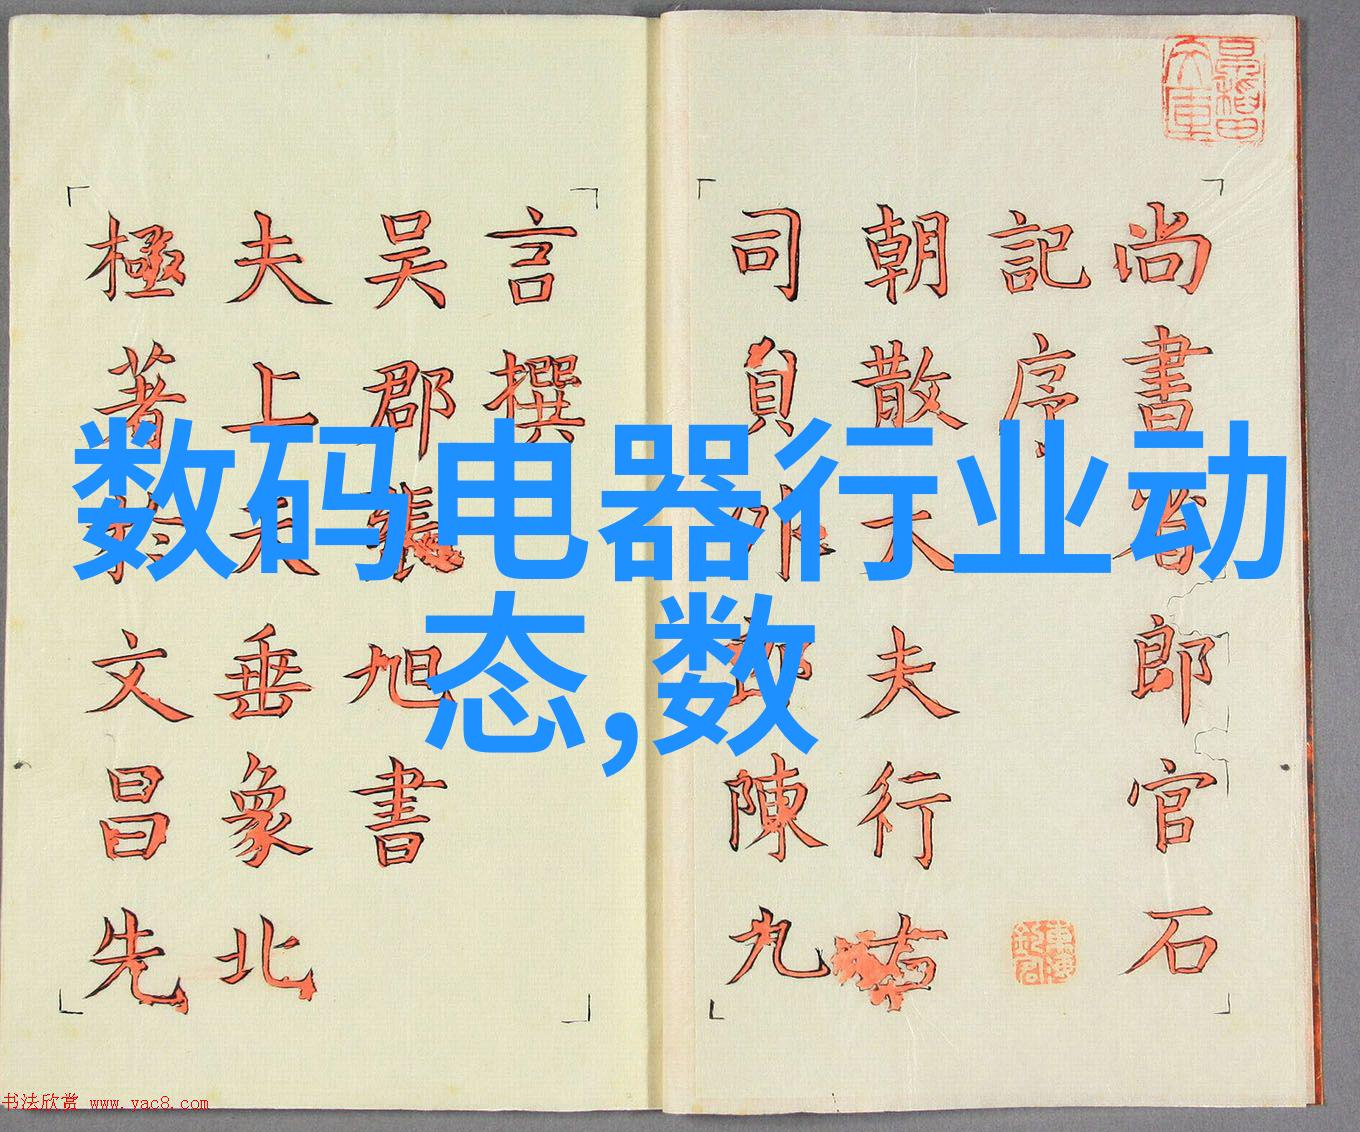 尚書省郎官石
記序
朝散大夫行右
司員外郎陳九
言撰
吴郡張旭書
夫上天垂象北
極著於文昌先
数码电器行业动
态,数
书法欣赏 www.yac8.com